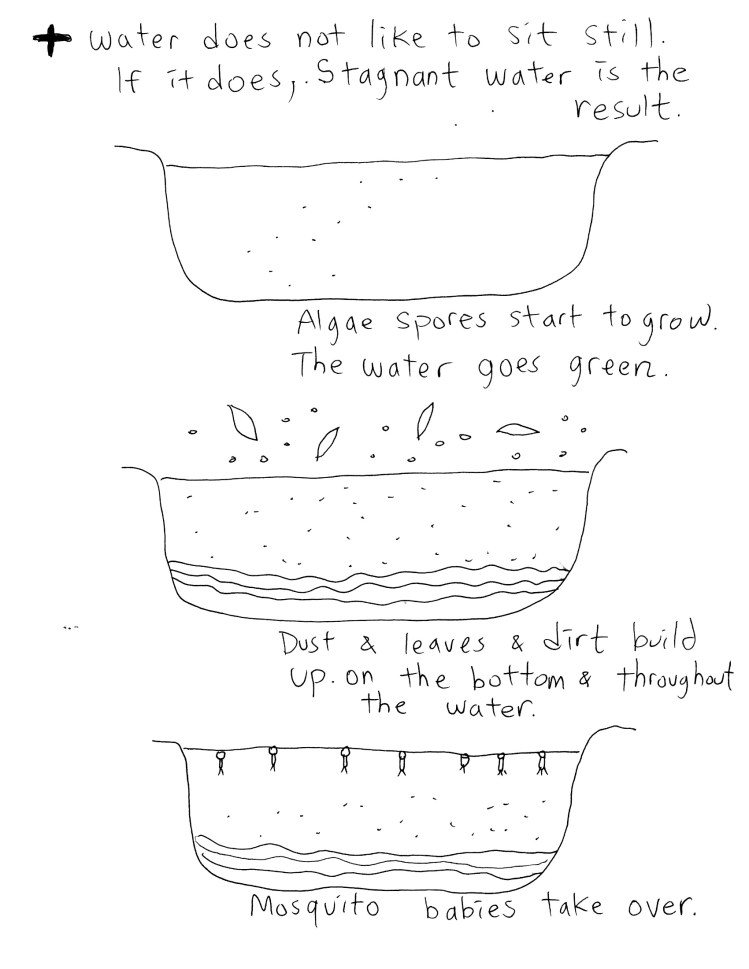 + water does not like to sit still.
If it does, Stagnant water is the
result.
Algae spores start to grow.
The water goes green.
Dust & leaves & dirt build
up on the bottom & throughout
the water.
Mosquito babies take over.